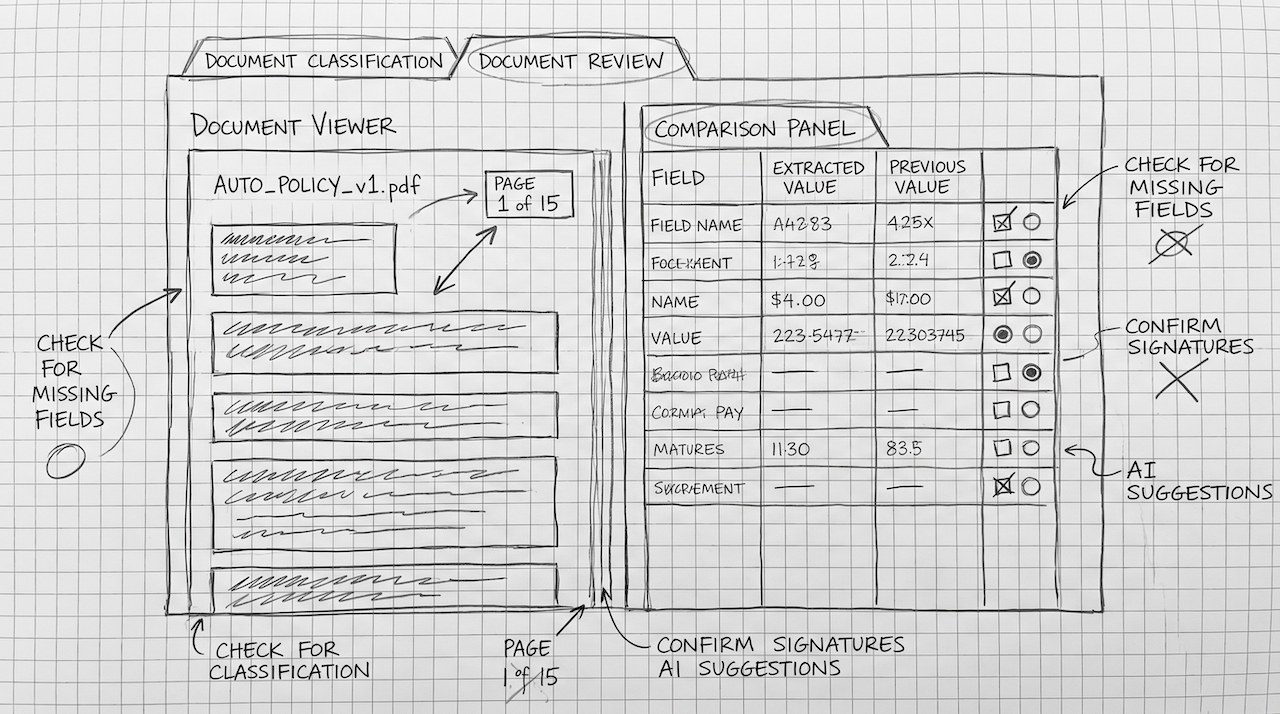 DOCUMENT CLASSIFICATION
DOCUMENT REVIEW
DOCUMENT VIEWER
AUTO_POLICY_v1.pdf
PAGE
1 of 15
COMPARISON PANEL
FIELD
EXTRACTED
VALUE
PREVIOUS
VALUE
FIELD NAME
A4283
4.25X
NAME
$4.00
$17.00
VALUE
223-5477
22303745
PAY
MATURES
11.30
83.5
CHECK
FOR
MISSING
FIELDS
CHECK FOR
MISSING
FIELDS
CONFIRM
SIGNATURES
AI
SUGGESTIONS
CHECK FOR
CLASSIFICATION
PAGE
1 of 15
CONFIRM SIGNATURES
AI SUGGESTIONS